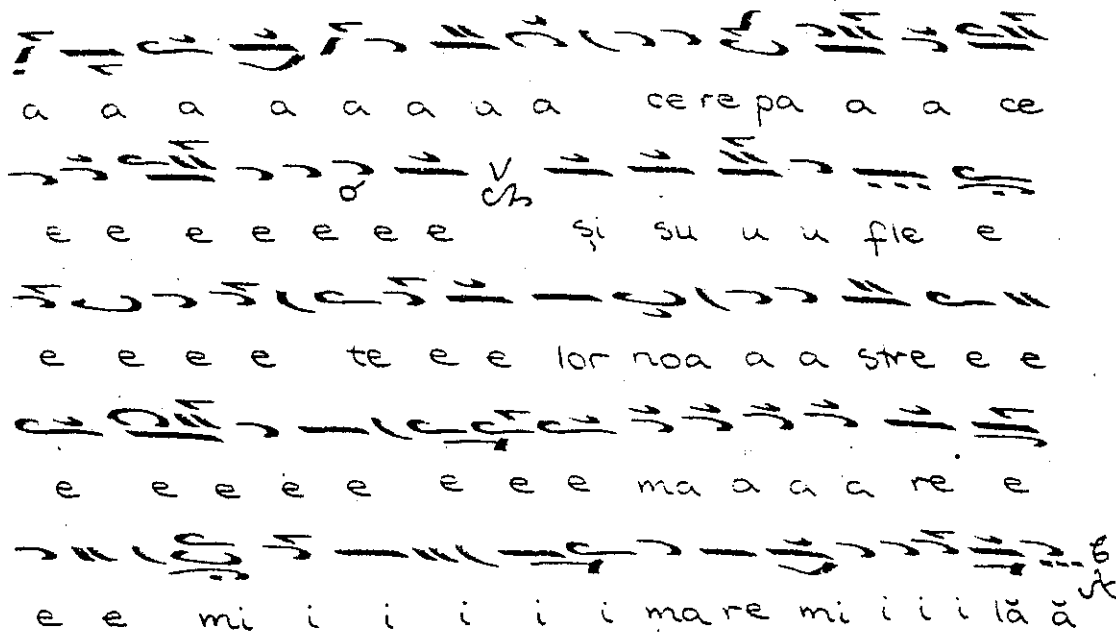 a a a a a a u a ce re pa a a ce
e e e e e e e și su u u fle e
e e e e te e e lor noa a a stre e e
e e e e e e e e ma a a a re e
e e mi i i i i i ma re mi i i i lă ă